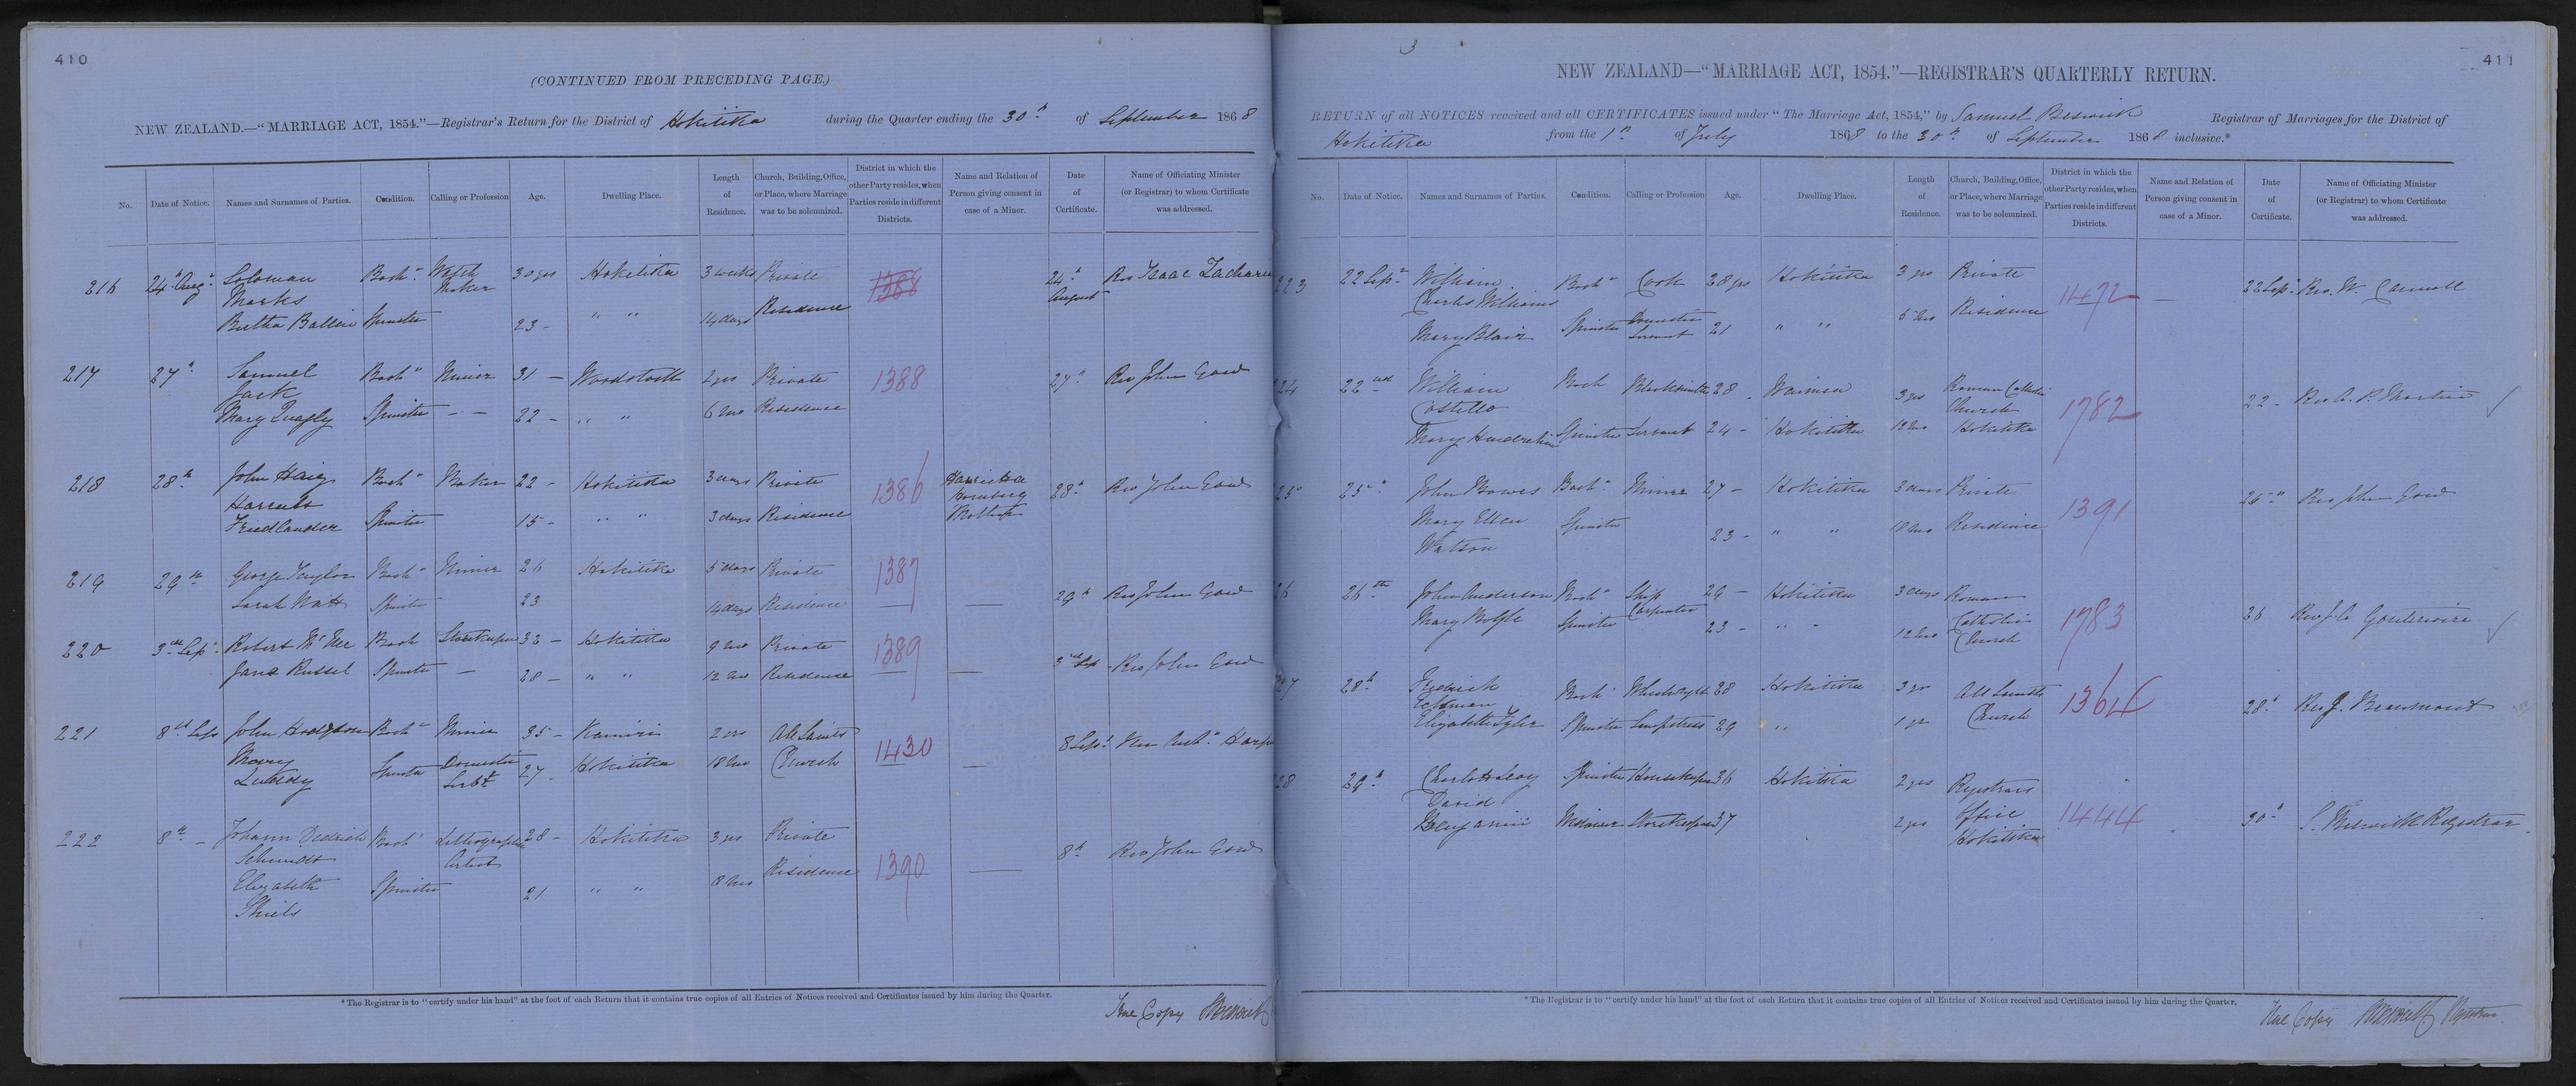 410
(CONTINUED FROM PRECEDING PAGE.)
NEW ZEALAND.—"MARRIAGE ACT, 1854."—Registrar's Return for the District of Hokitika during the Quarter ending the 30th of September 1868
No. Date of Notice. Names and Surnames of Parties. Condition. Calling or Profession Age. Dwelling Place. Length of Residence. Church, Building, Office, or Place, where Marriage was to be solemnized. District in which the other Party resides, when Parties reside in different Districts. Name and Relation of Person giving consent in case of a Minor. Date of Certificate. Name of Officiating Minister (or Registrar) to whom Certificate was addressed.
216 24th Augt Soloman Bachr Watch 30 yrs Hokitika 3 weeks Private 1388 24th Rev Isaac Zachariah
Marks Maker August
Bertha Ballin Spinster 23 - " " 14 days Residence
217 27th Samuel Bachr Miner 31 — Woodstock 2 yrs Private 1388 27th Rev John Gow
Jack
Mary Quigly Spinster — — 22 - " " 6 mo Residence
218 28th John Haig Bachr Baker 22 - Hokitika 3 days Private 1386 28th Rev John Gow
Harriett
Friedlander Spinster 15 - " " 3 days Residence Mother
219 29th George Taylor Bachr Miner 26 Hokitika 5 days Private 1387 29th Rev John Gow
Sarah Watt Spinster 23 14 days Residence —
220 3rd Sep Robert McNee Bach Storekeeper 32 — Hokitika 9 mo Private 1389 3rd Sep Rev John Gow
Jane Russel Spinster — 28 — " " 12 mo Residence —
221 8th Sep John Hodgson Bachr Miner 35 - Kanieri 2 yrs All Saints 1430 8 Sept Ven Archn Harper
Mary Spinster Domestic 27 - Hokitika 18 mo Church —
Luddy Servt
222 8th - Johann Dedrich Bach Lithographic 28 - Hokitika 3 yrs Private 1390 8th Rev John Gow
Schmidt Artist
Elizabeth Spinster 21 " " 8 mo Residence —
Shiels
*The Registrar is to "certify under his hand" at the foot of each Return that it contains true copies of all Entries of Notices received and Certificates issued by him during the Quarter.
True Copy SBeswick
3
411
NEW ZEALAND—"MARRIAGE ACT, 1854."—REGISTRAR'S QUARTERLY RETURN.
RETURN of all NOTICES received and all CERTIFICATES issued under "The Marriage Act, 1854," by Samuel Beswick Registrar of Marriages for the District of
Hokitika from the 1st of July 1868 to the 30th of September 1868 inclusive.*
No. Date of Notice. Names and Surnames of Parties. Condition. Calling or Profession Age. Dwelling Place. Length of Residence. Church, Building, Office, or Place, where Marriage was to be solemnized. District in which the other Party resides, when Parties reside in different Districts. Name and Relation of Person giving consent in case of a Minor. Date of Certificate. Name of Officiating Minister (or Registrar) to whom Certificate was addressed.
223 22 Sepr William Bachr Cook 28 yrs Hokitika 3 yrs Private 1472 — 22 Sepr Rev. W.
Charles Williams
Mary Blair Spinster Domestic Servant 21 " " 6 mo Residence
24 22nd William Bach Blacksmith 28 - Waimea 3 yrs Roman Catholic 1782 22 - Rev A. P. Martin
Costello Church
Mary Spinster Servant 24 - Hokitika 12 mo Hokitika
25 25th John Bowes Bachr Miner 27 - Hokitika 3 days Private 1391 Rev John Gow
Mary Ellen Spinster 23 - " " 18 mo Residence
Watson
26 26th John Anderson Bachr Ship 29 - Hokitika 3 days Roman 1783 26
Mary Wolfe Spinster Carpenter 23 - " " 12 mo Catholic
Church
27 28th Fredrick Bach Wheelwright 38 Hokitika 3 yrs All Saints 1364 28th Rev J. Beaumont
Eckman
Elizabeth Tyler Spinster Sempstress 29 " 1 yr Church
28 29th Charlotte Levy Spinster Housekeeper 36 Hokitika 2 yrs Registrars 1444 30th S. Beswick Registrar
David Office
Benjamin Widower Storekeeper 37 2 yrs Hokitika
*The Registrar is to "certify under his hand" at the foot of each Return that it contains true copies of all Entries of Notices received and Certificates issued by him during the Quarter.
True Copy SBeswick Registrar